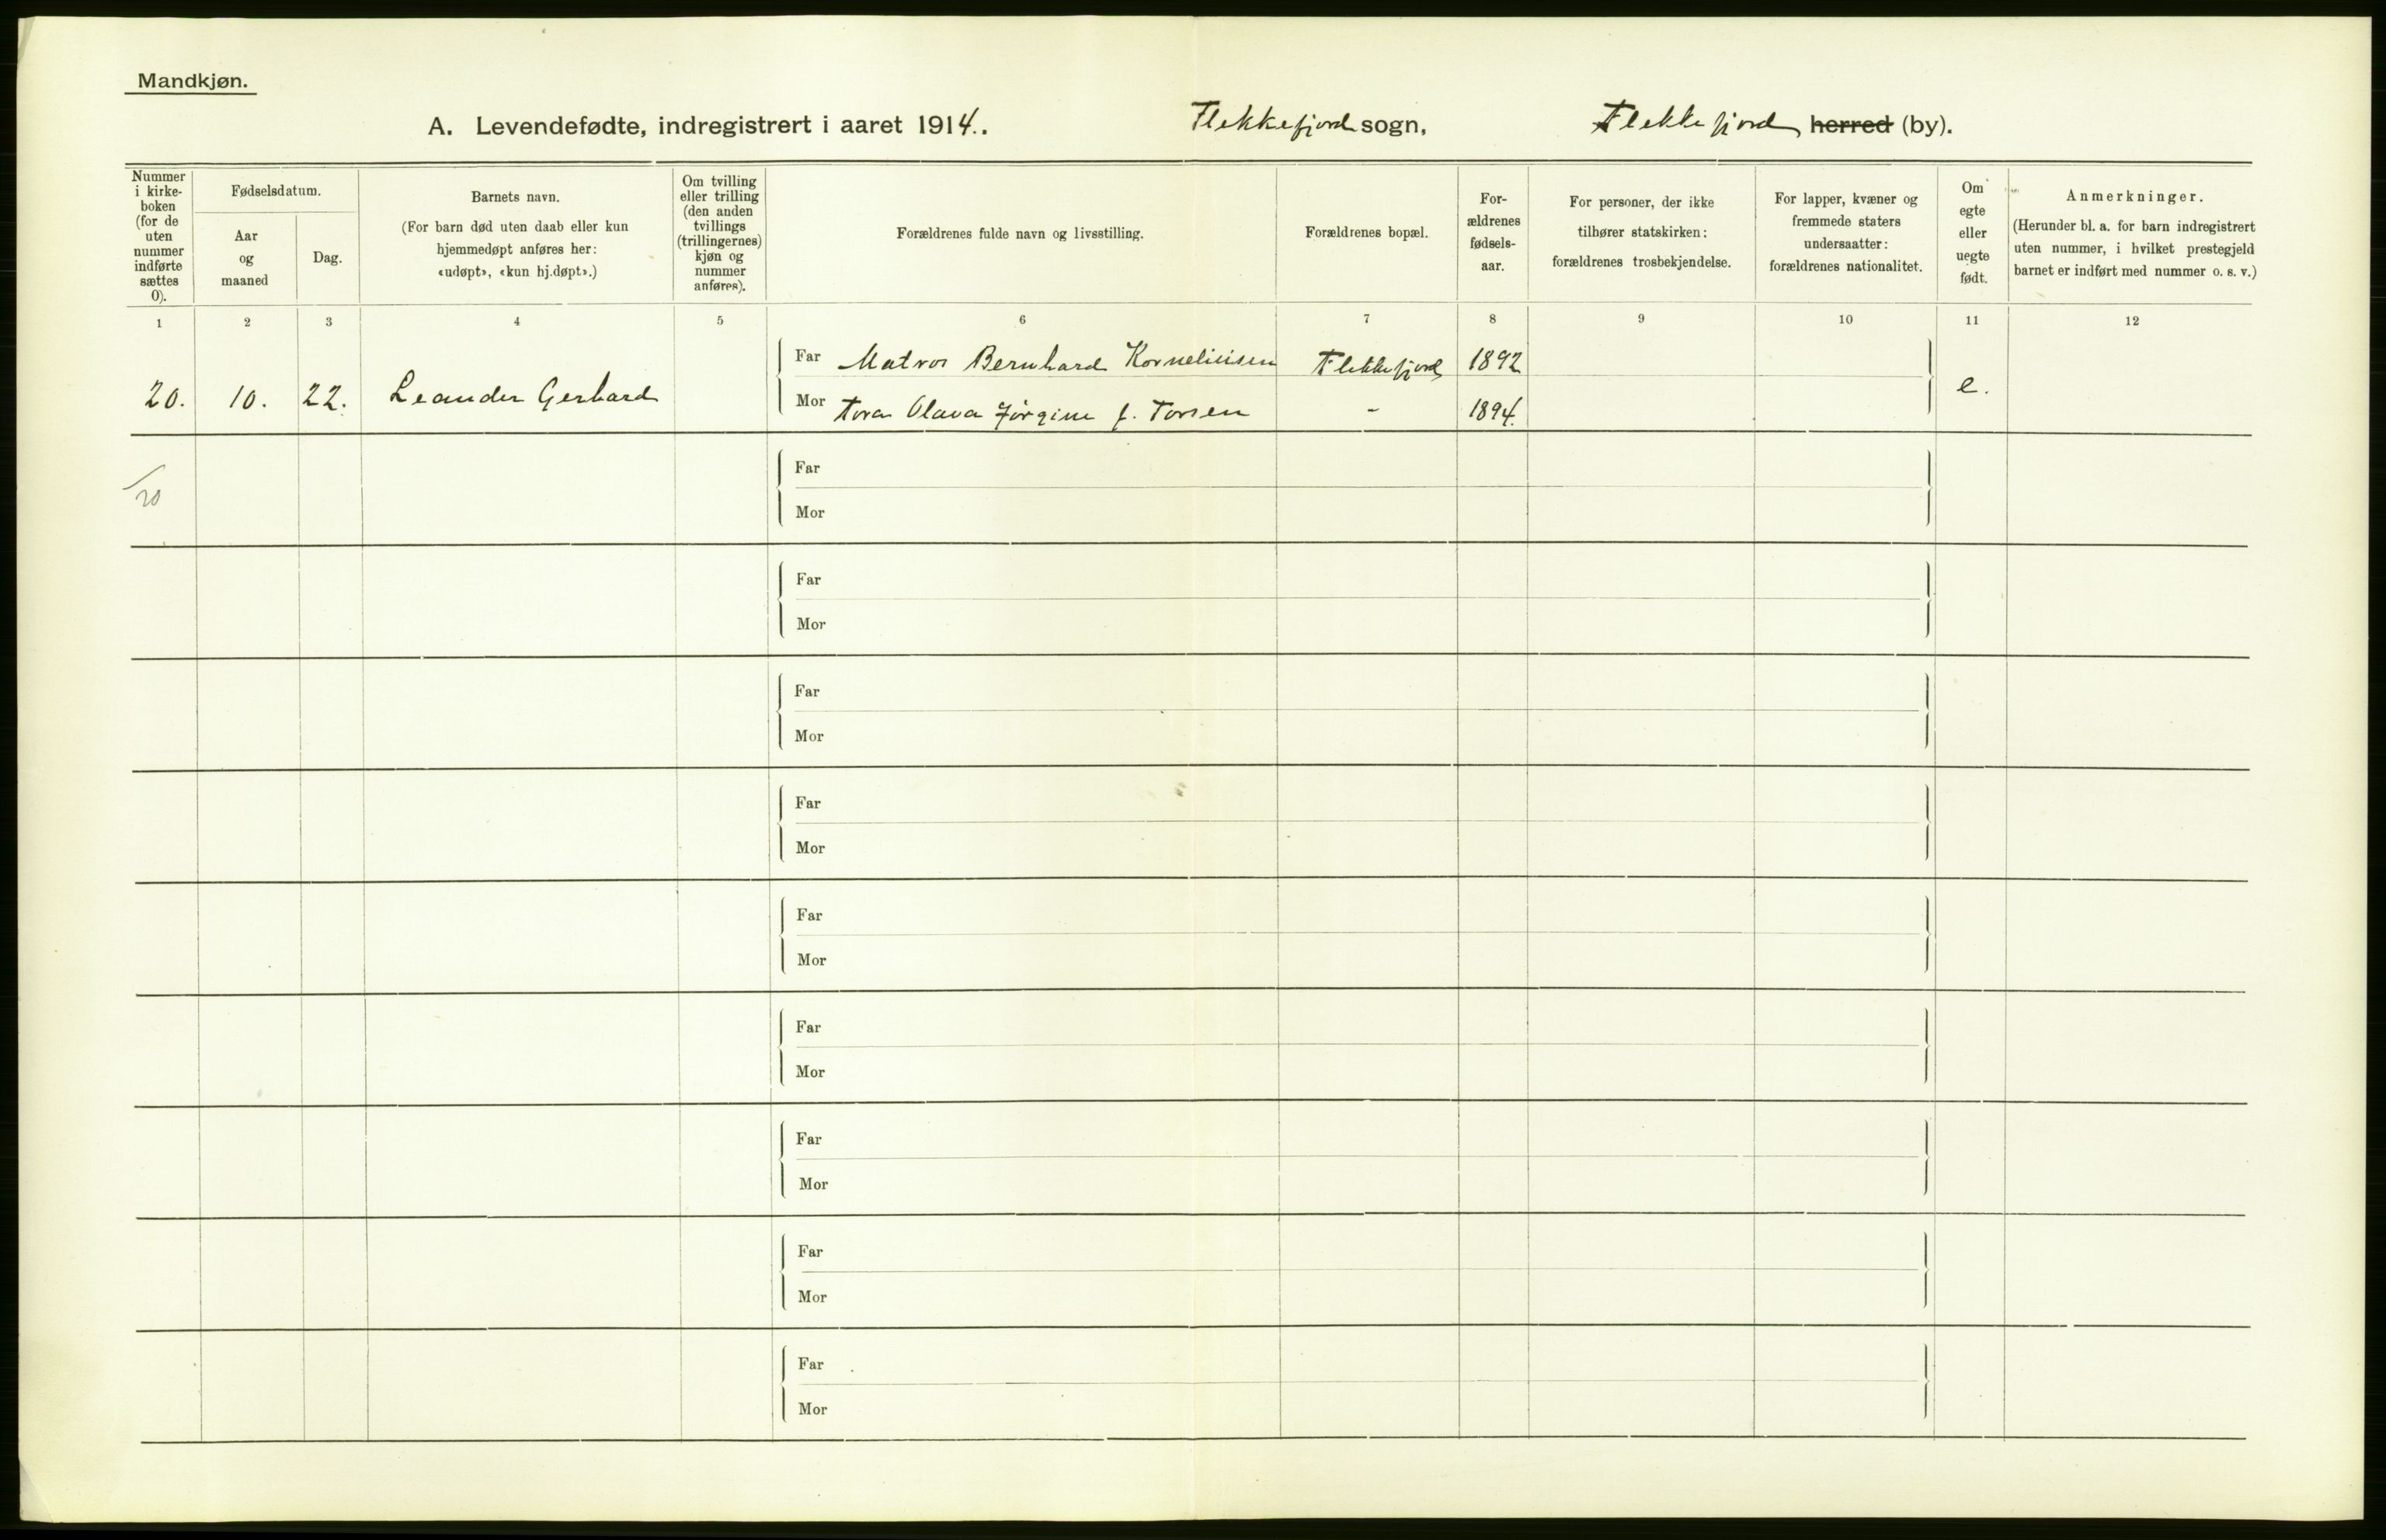 Mandkjøn.
A. Levendefødte, indregistrert i aaret 1914.. Flekkefjord sogn, Flekkefjord herred (by).
Nummer
i kirke-
boken
(for de
uten
nummer
indførte
sættes
0).
Fødselsdatum.
Aar
og
maaned
Dag.
Barnets navn.
(For barn død uten daab eller kun
hjemmedøpt anføres her:
«udøpt», «kun hj.døpt».)
Om tvilling
eller trilling
(den anden
tvillings
(trillingernes)
kjøn og
nummer
anføres).
Forældrenes fulde navn og livsstilling.
Forældrenes bopæl.
For-
ældrenes
fødsels-
aar.
For personer, der ikke
tilhører statskirken:
forældrenes trosbekjendelse.
For lapper, kvæner og
fremmede staters
undersaatter:
forældrenes nationalitet.
Om
egte
eller
uegte
født.
Anmerkninger.
(Herunder bl. a. for barn indregistrert
uten nummer, i hvilket prestegjeld
barnet er indført med nummer o. s. v.)
1 2 3 4 5 6 7 8 9 10 11 12
Far Matros Bernhard Korneliusen Flekkefjord 1892
20. 10. 22. Leander Gerhard e.
Mor Tora Olava Jørgine f. Torsen - 1894.
Far
20
Mor
Far
Mor
Far
Mor
Far
Mor
Far
Mor
Far
Mor
Far
Mor
Far
Mor
Far
Mor